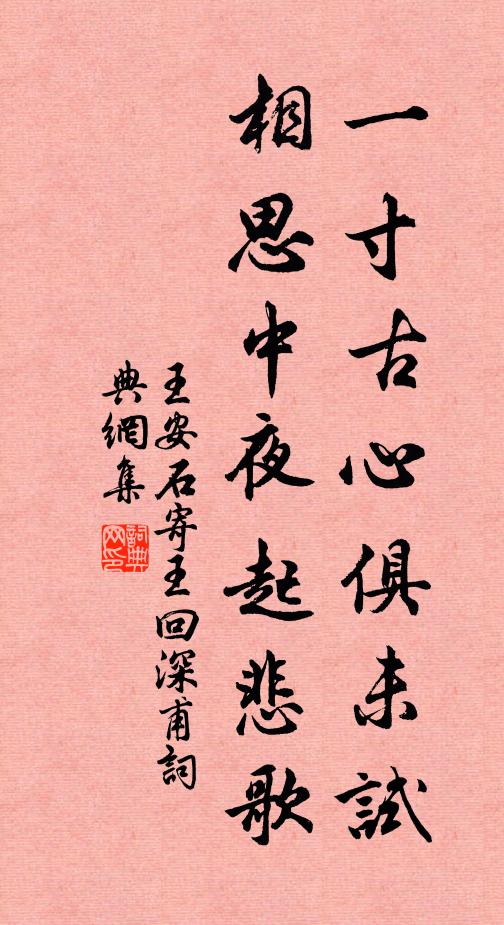 一寸古心俱未試
相思中夜起悲歌
王安石寄王回深甫詞
典網集
詞典網印